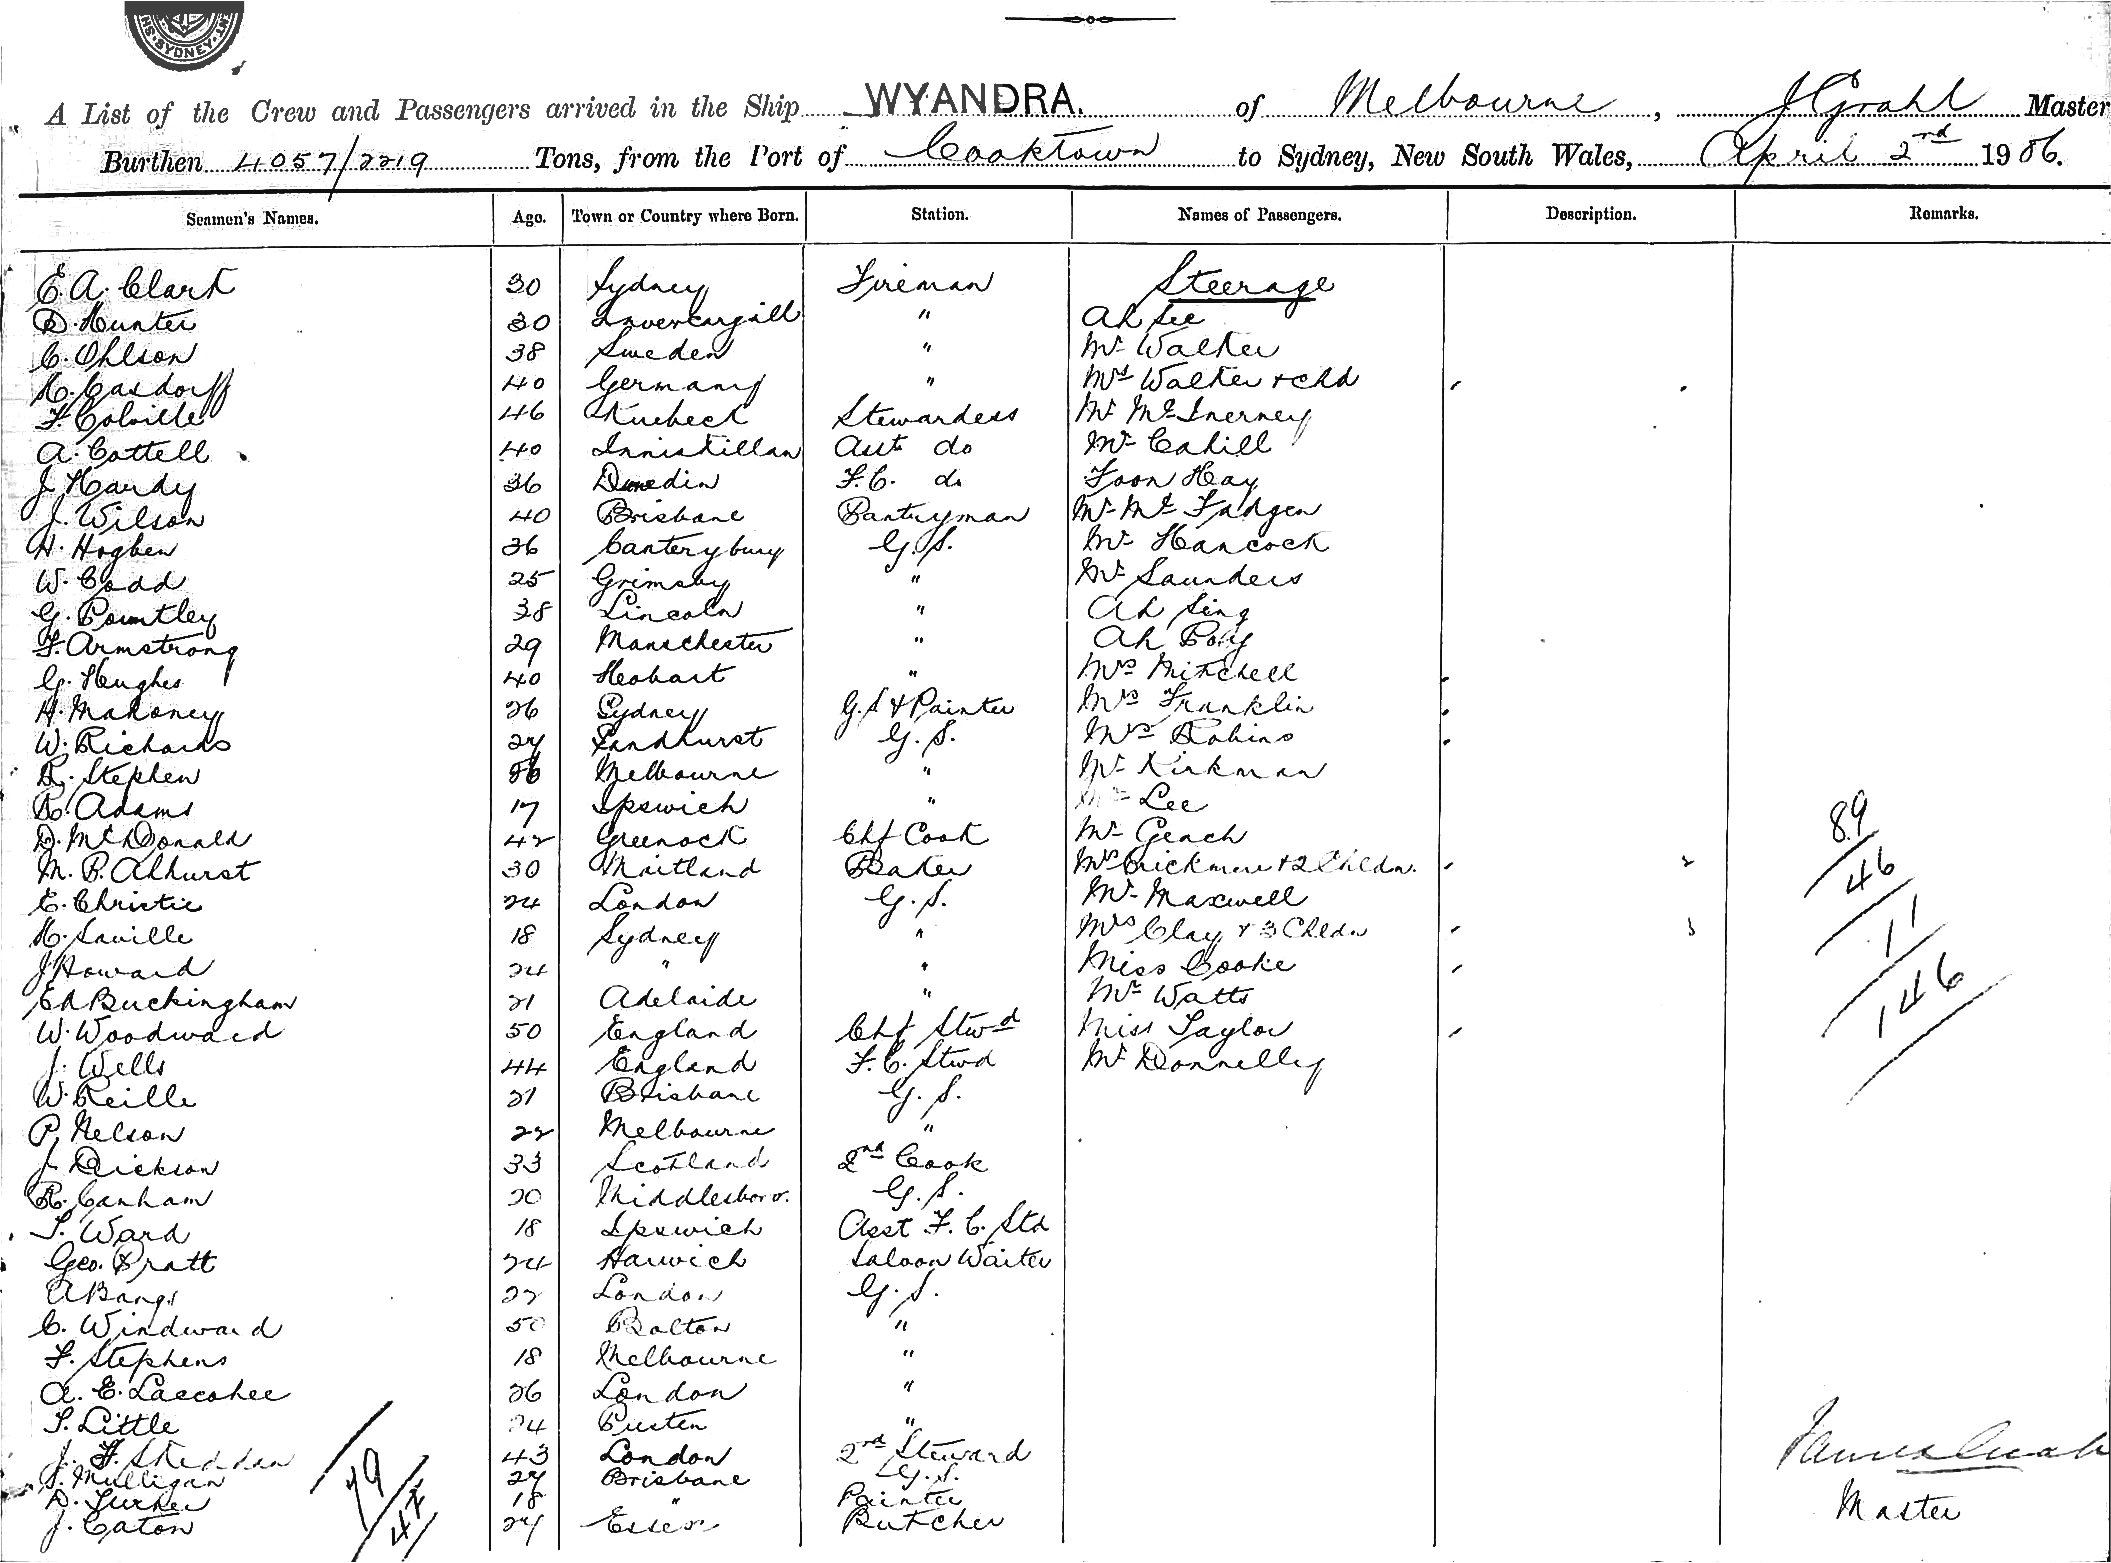 SYDNEY
A List of the Crew and Passengers arrived in the Ship WYANDRA. of Melbourne, J Grahl Master
Burthen 4057/2219 Tons, from the Port of Cooktown to Sydney, New South Wales, April 2nd 1906.
Seamen's Names. Age. Town or Country where Born. Station. Names of Passengers. Description. Remarks.
E. A. Clark 30 Sydney Fireman Steerage
D. Hunter 30 Invercargill " Ah Lee
C. Ohlson 38 Sweden " Mr Walker
C. Casdorff 40 Germany " Mrs Walker + chld
F. Colville 46 Stewardess Mr McInerney
A. Cottell 40 Inniskillan Asst do Mr Cahill
J. Hardy 36 Dunedin F.C. do Foon Hay
J. Wilson 40 Brisbane Pantryman Mr McFadgen
H. Hogben 26 Canterybury G.S. Mr Hancock
W. Codd 25 Grimsby " Mr Saunders
G. Pountley 38 Lincoln " Ah Sing
F. Armstrong 29 Manschester " Ah
G. Hughes 40 Hobart " Mrs Mitchell
H. Mahoney 26 Sydney G.S + Painter Mrs Franklin
W. Richards 27 Sandhurst G.S. Mrs Robins
R. Stephen Melbourne " Mr Kirkman
R. Adams 17 Ipswich " Lee
D. McDonald 42 Greenock Chf Cook Mr Geach
M. P. Alhurst 30 Maitland Baker Mrs + 2 Chldn.
E. Christie 24 London G.S. Mr Maxwell
H. Saville 18 Sydney " Mrs Clay + 3 Chldn
J Howard 24 " " Miss Cooke
Ed Buckingham 21 Adelaide " Mr Watts
W. Woodward 50 England Chf Stwd Miss Taylor
J. Wells 44 England F.C. Stwd Mr Donnelly
W. Reille 21 Brisbane G.S.
P. Nelson 22 Melbourne "
J. Dickson 33 Scotland 2nd Cook
R. Canham 20 Middlesboro. G.S.
S. Ward 18 Ipswich Asst F.C. Std
Geo. Pratt 24 Harwich Saloon Waiter
A Bangs 22 London G.S.
C. Windward 50 Bolton "
F. Stephens 18 Melbourne "
A. E. Laccohee 26 London "
S. Little 24 "
J. F. Sheddan 43 London 2nd Steward
S. Mulligan 27 Brisbane G.S.
D. Turner 18 " Painter
J. Eaton 27 Essex Butcher
89
46
11
146
79
47
Master